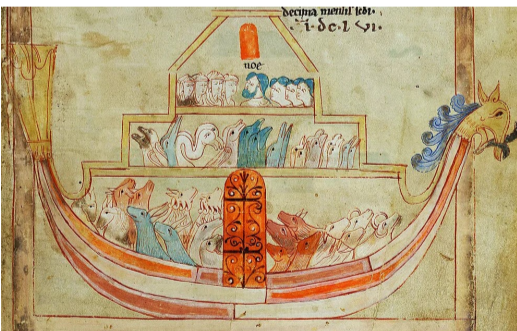 decima mensis scdi·
·ī·dc·l·vi·
noe